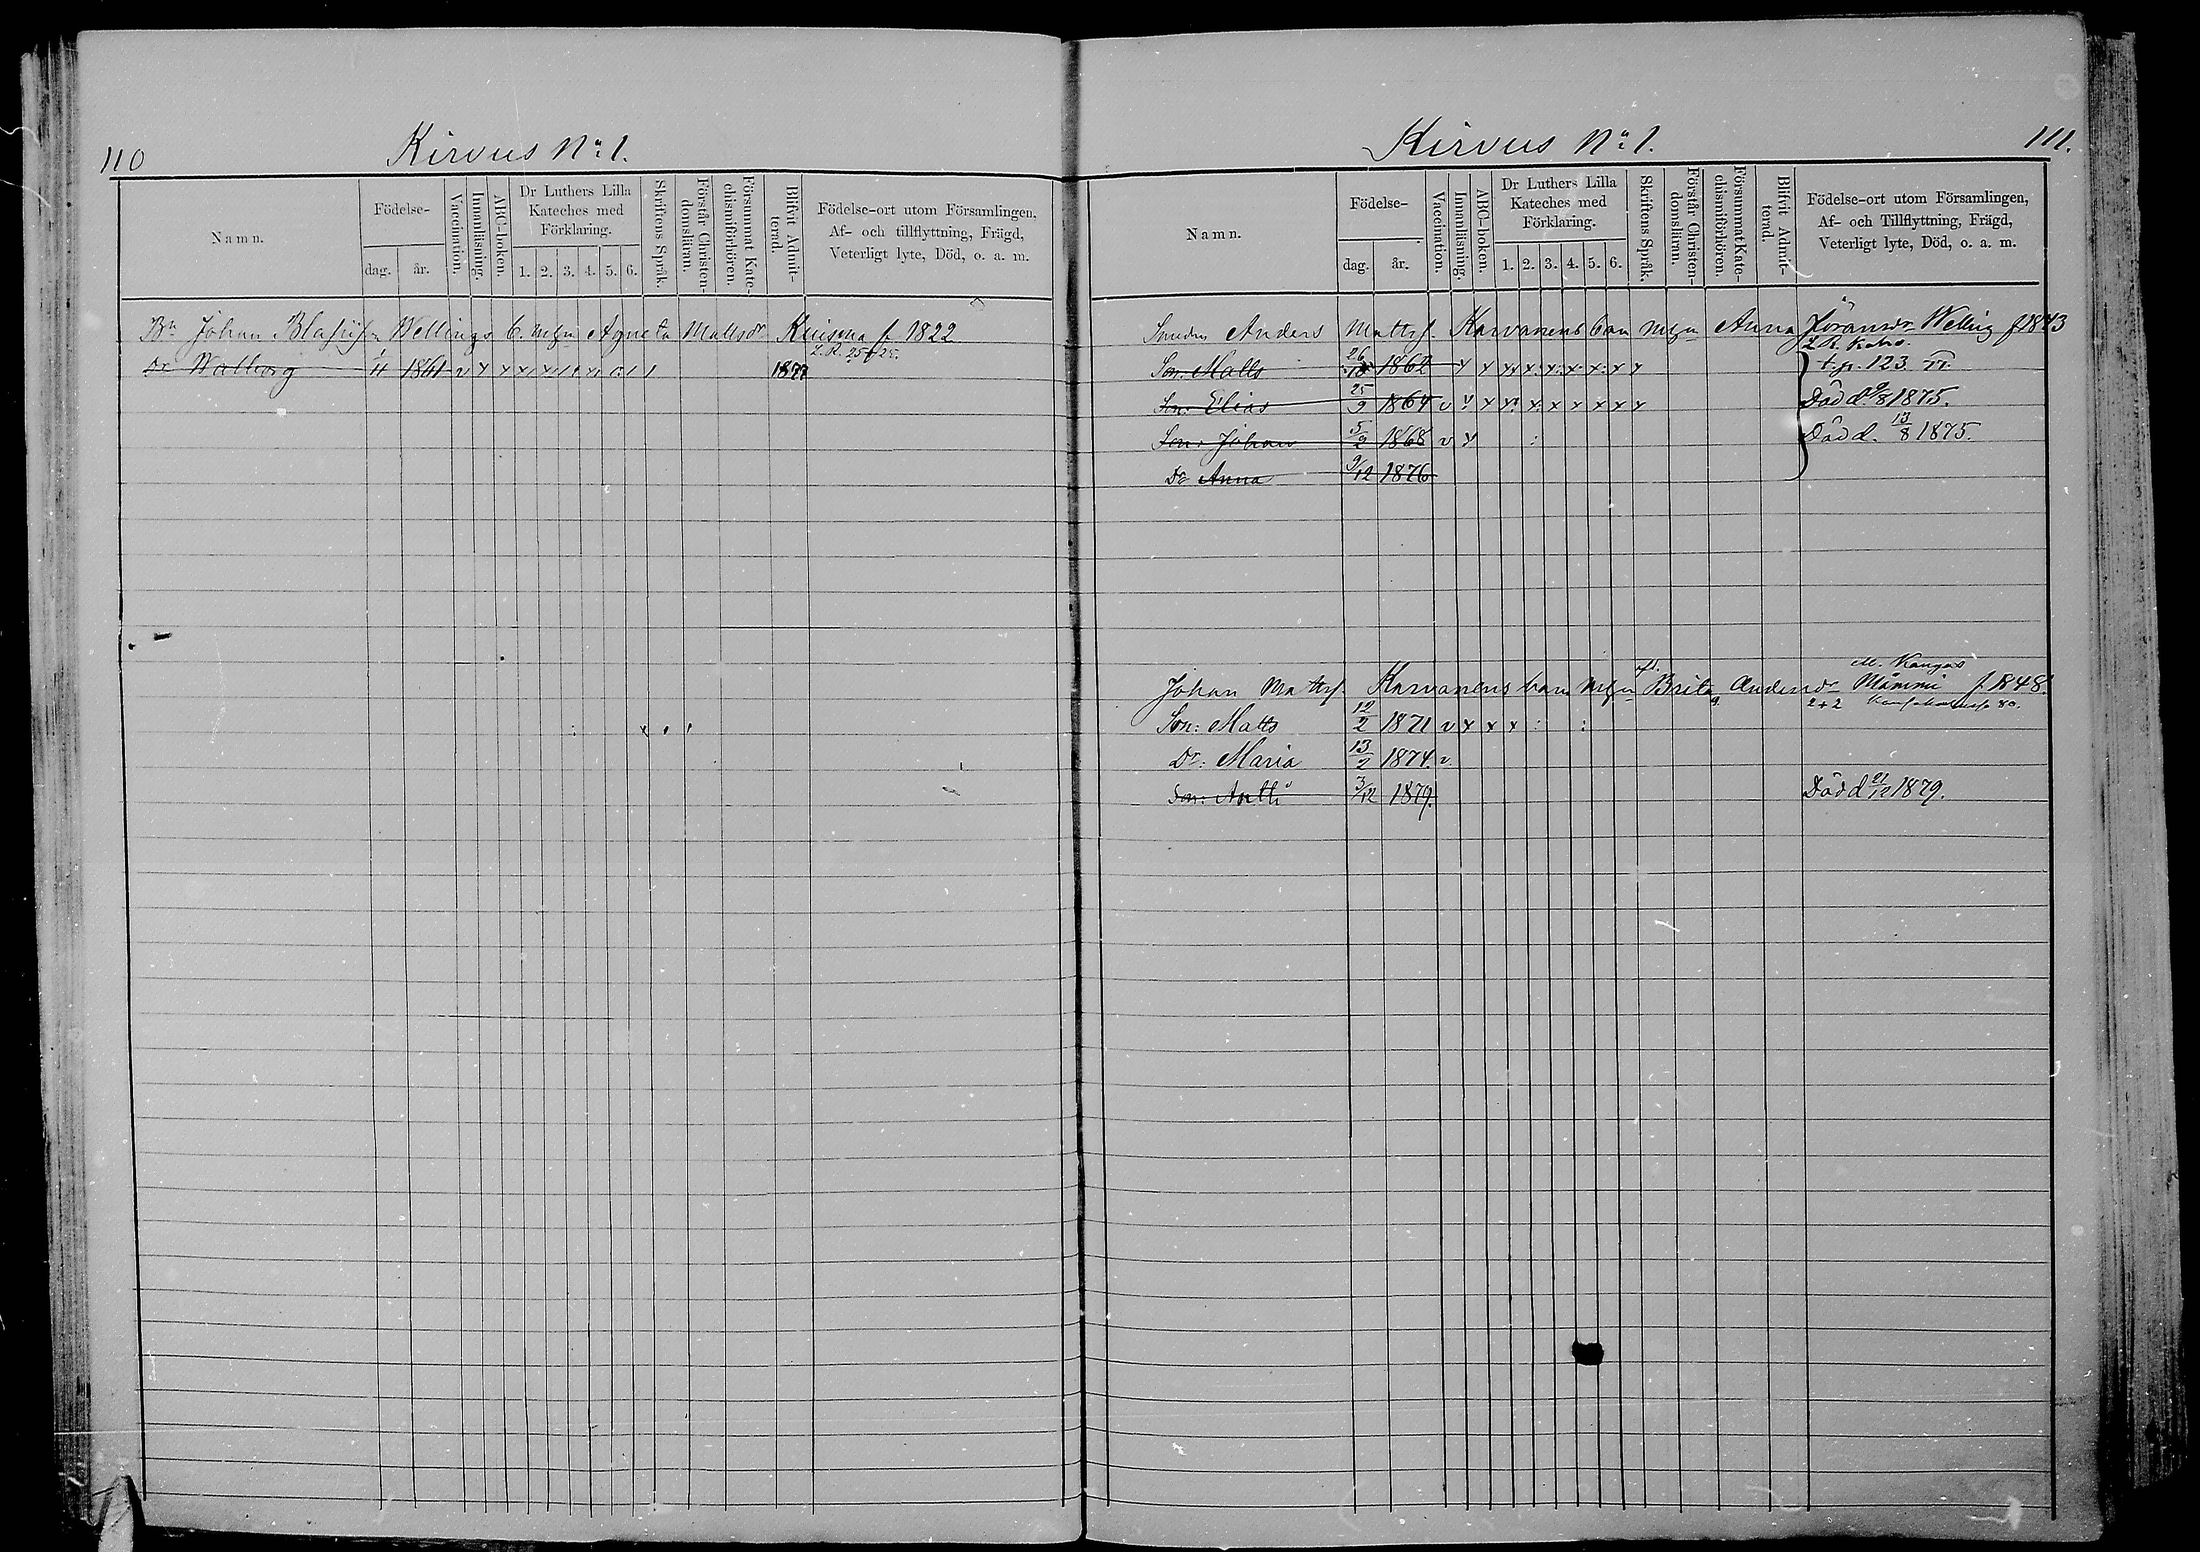 110
Kirvus No 1.
Namn.
Födelse-
dag.
år.
Vaccination.
Innanläsning.
ABC-boken.
Dr Luthers Lilla
Kateches med
Förklaring.
1. 2. 3. 4. 5. 6.
Skriftens Språk.
Förstår Christen-
domsläran.
Försummat Kate-
chismiförhören.
Blifvit Admit-
terad.
Födelse-ort utom Församlingen,
Af- och tillflyttning, Frägd,
Veterligt lyte, Död, o. a. m.
Bn Johan Wellings b. m Agneta Mattsdr Kuisma f 1822
L. R. 25 + 25.
Dr Walborg 1/4 1861 v x x x x x 1877
Kirvus No 1. 111.
Namn.
Födelse-
dag.
år.
Vaccination.
Innanläsning.
ABC-boken.
Dr Luthers Lilla
Kateches med
Förklaring.
1. 2. 3. 4. 5. 6.
Skriftens Språk.
Förstår Christen-
domsläran.
Försummat Kate-
chismiförhören.
Blifvit Admit-
terad.
Födelse-ort utom Församlingen,
Af- och Tillflyttning, Frägd,
Veterligt lyte, Död, o. a. m.
Smeden Anders Mattss. Karvanens barn m Anna Jöransdr Welling f 1843
Son: Matts 26/10 1862 x x x x x x x x x t. p. 123
Son: Elias 25/9 1864 v x x x x x x x x x Död d. 9/8 1875.
Son: Johan 5/2 1868 v x : Död d. 13/8 1875.
Dr Anna 9/12 1876
M. Kangas
Johan Mattss. Karvanens barn m Brita Andersdr Mämmi f. 1848.
2+2
Son: Matts 12/2 1871 v x x x : :
Dr: Maria 13/2 1874. v.
Son: Antti 3/12 1879. Död d 21/12 1879.